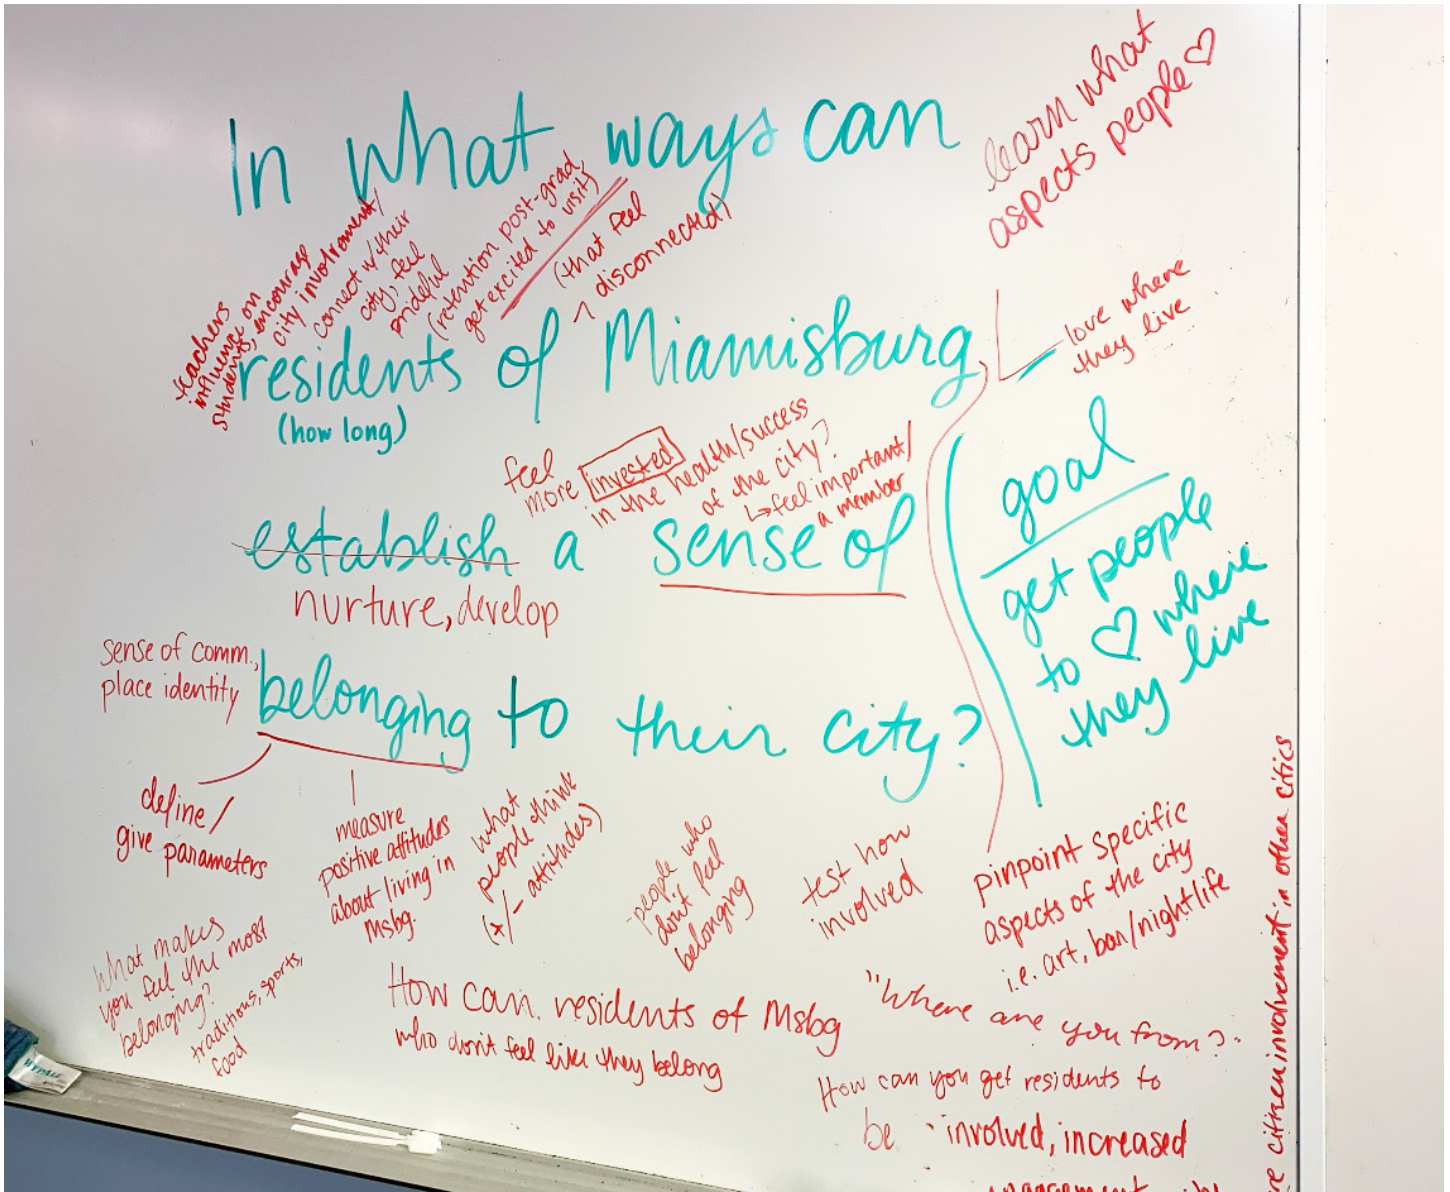 In what ways can
learn what
aspects people ♡
teachers
influence on
students, encourage
city involvement/
connect w/ their
city, feel
prideful
(retention post-grad,
get excited to visit)
(that feel
disconnected)
residents of Miamisburg
(how long)
love where
they live
feel
more invested
in the health/success
of the city?
↳ feel important/
a member
establish a sense of
nurture, develop
goal
get people
to ♡ where
they live
sense of comm.,
place identity
belonging to their city?
define/
give parameters
measure
positive attitudes
about living in
Msbg.
what
people think
(+/- attitudes)
people who
don't feel
belonging
test how
involved
pinpoint specific
aspects of the city
i.e. art, bar/nightlife
What makes
you feel the most
belonging?
traditions, sports,
food
How can residents of Msbg
who don't feel like they belong
"Where are you from?"
How can you get residents to
be involved, increased
citizen involvement in other cities
WYPALL